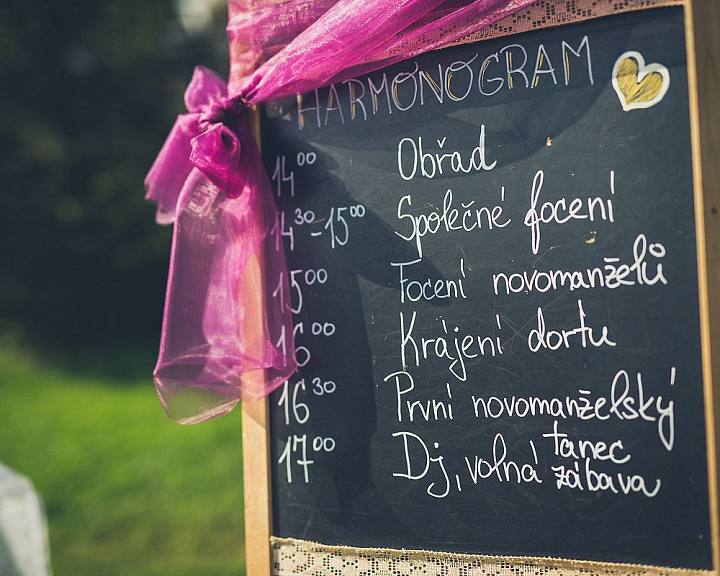 HARMONOGRAM
14 00 Obřad
14 30 - 15 00 Společné focení
15 00 Focení novomanželů
16 00 Krájení dortu
16 30 První novomanželský tanec
17 00 Dj, volná zábava